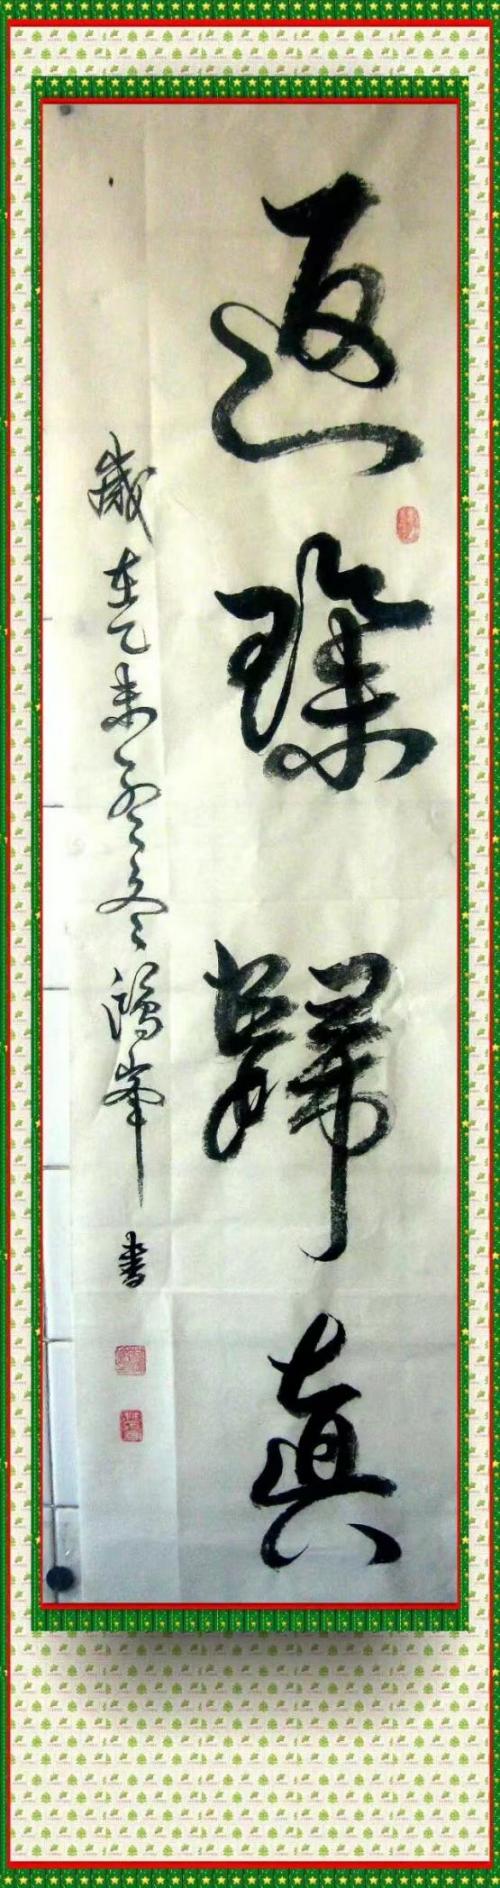 返璞歸真
歲在乙未 鴻峰書